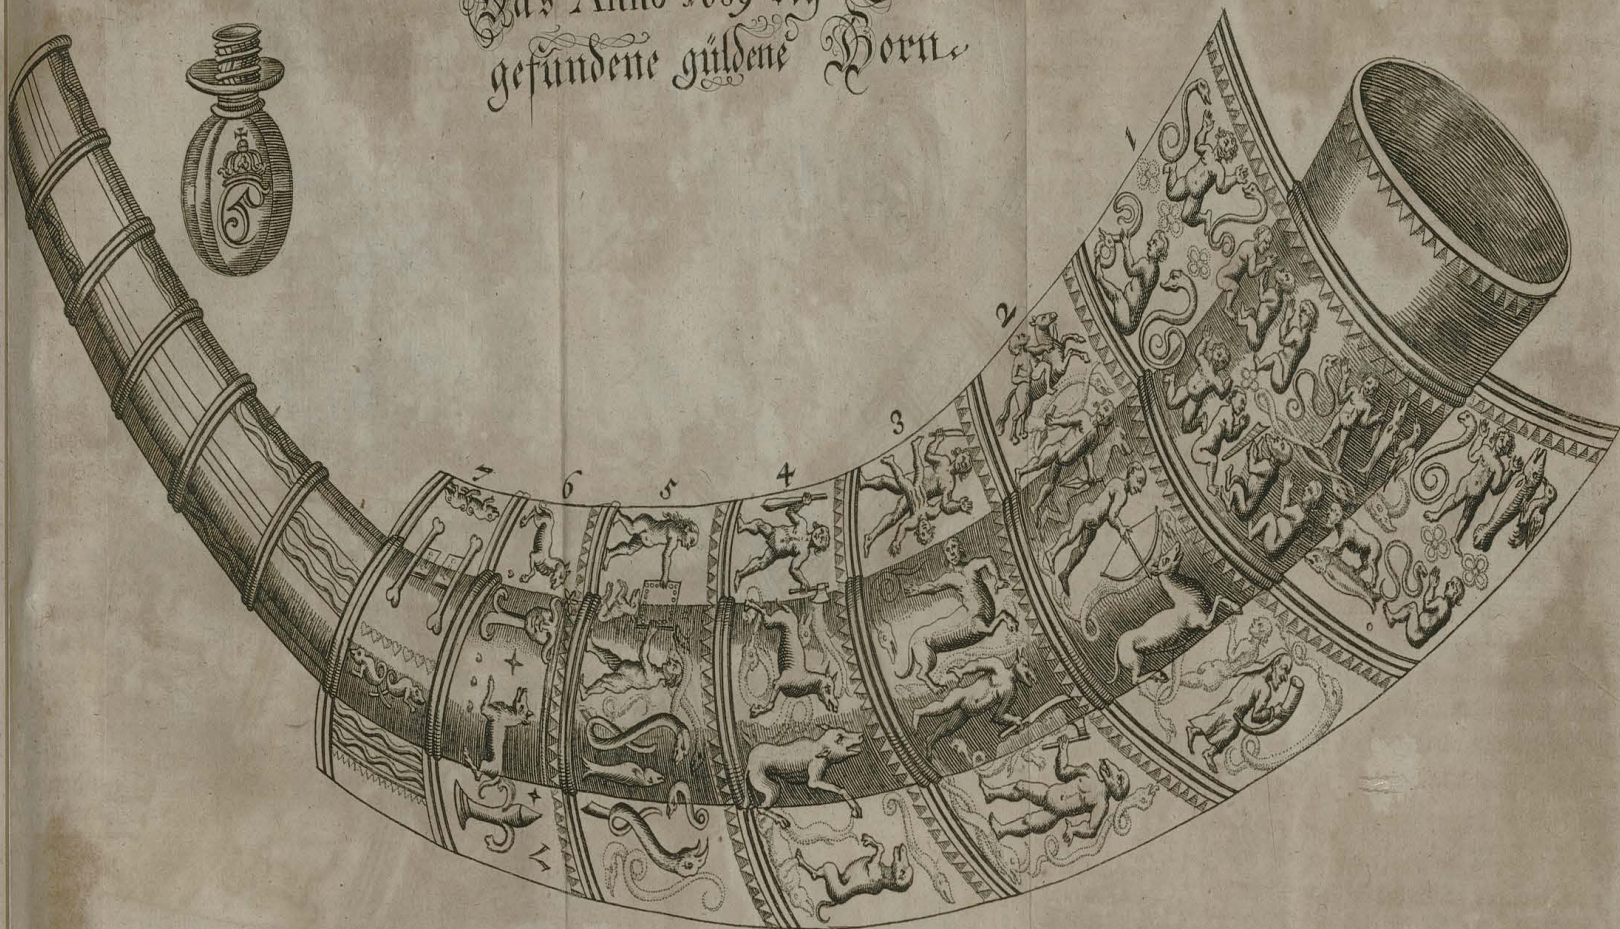 Das Anno
gefundene güldene Horn.
1
2
3
4
5
6
7